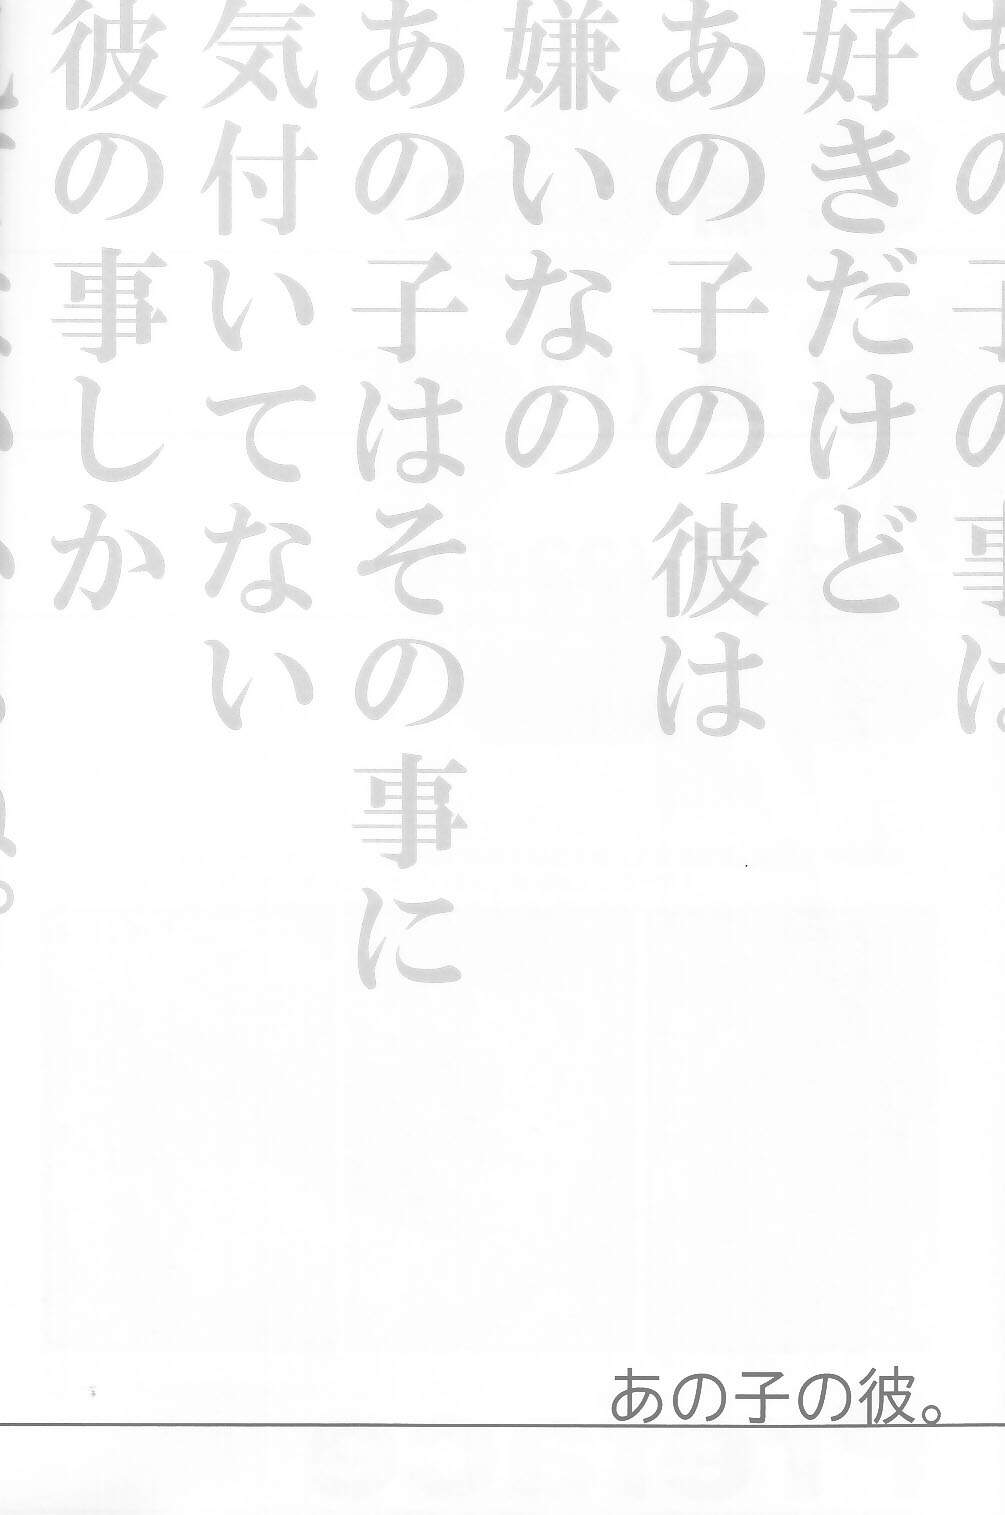 あの子の事は
好きだけど
あの子の彼は
嫌いなの
あの子はその事に
気付いてない
彼の事しか
あの子の彼。